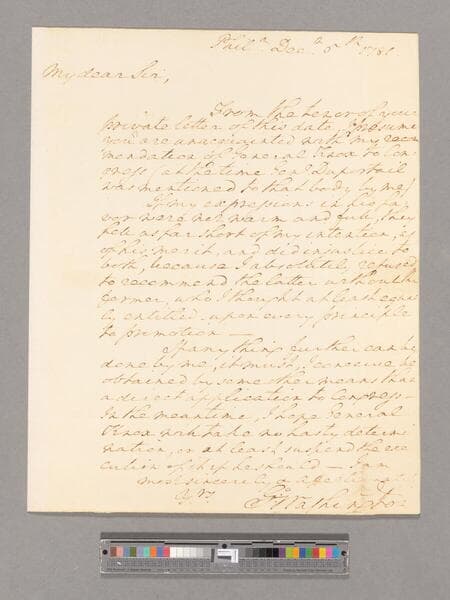 Phila. Decr. 5th 1781.
My dear Sir,
From the tenor of your
private letter of this date I presume
you are unacquainted with my recom
mendation of General Knox to Con-
gress, at the time Genl Duportail
was mentioned to that body by me.
If my expressions in his fa-
vor were not warm and full, they
fell as far short of my intention, as
of his merit, and did injustice to
both, because I absolutely refused
to recommend the latter without the
former, who I thought at least equal
ly entitled upon every principle
to promotion —
If any thing further can be
done by me, it must, I conceive be
obtained by some other means than
a direct application to Congress —
In the meantime, I hope General
Knox will take no hasty determi
nation, or at least suspend the exe
cution of it if he should — I am
most sincerely & affectionately
Yrs
Go: Washington